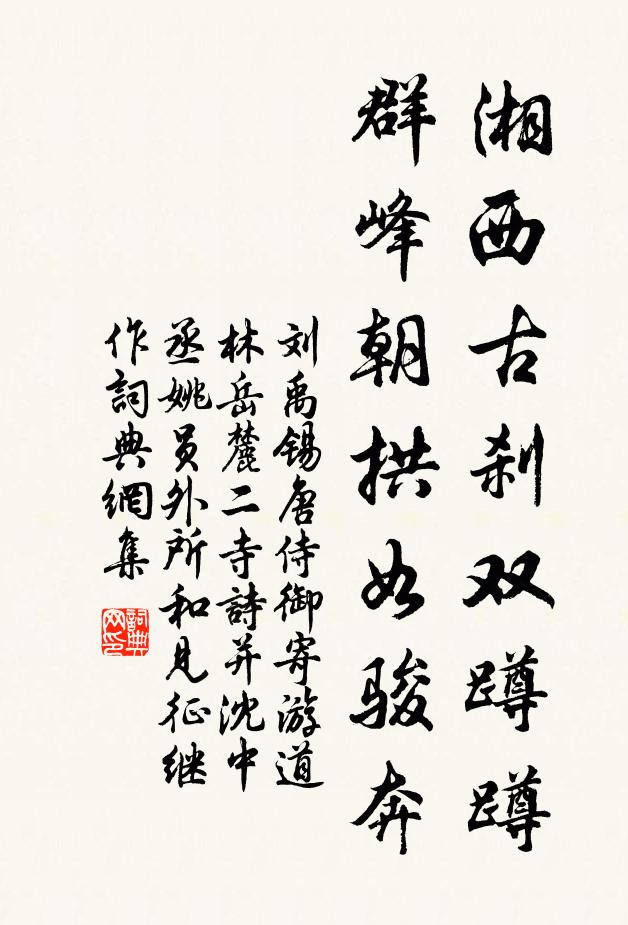 湘西古刹双蹲蹲
群峰朝拱如骏奔
刘禹锡唐侍御寄游道
林岳麓二寺詩并沈中
丞姚员外所和见征继
作詞典網集
詞典
网印